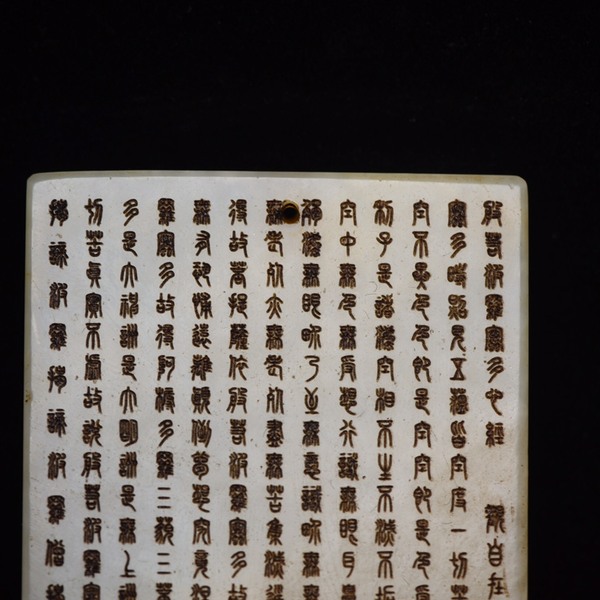 般若波羅蜜多心經 觀自在
蜜多時照見五蘊皆空度一切苦
空不異色色即是空空即是色受
利子是諸法空相不生不滅不垢
空中無色無受想行識無眼耳鼻
觸法無眼界乃至無意識界無無
無老死亦無老死盡無苦集滅道
得故菩提薩依般若波羅蜜多故
無有恐怖遠離顛倒夢想究竟涅
羅蜜多故得阿耨多羅三藐三菩
多是大神咒是大明咒是無上咒
切苦真實不虛故說般若波羅蜜
揭諦波羅揭諦波羅僧揭